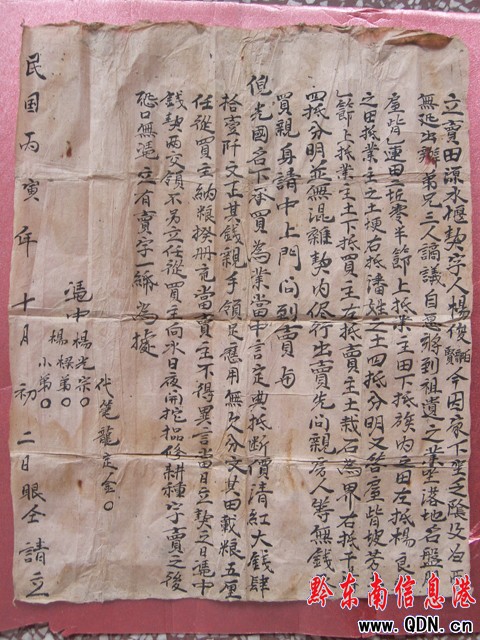 立賣田涼水堰契字人楊俊 今因家下
無 弟兄三人謫議自愿將到祖遺之業坐落地名盤
屋背 運田一坵 半節上抵業主田下抵族内之田左抵楊良
之田抵業主之土埂右抵潘姓之土四抵分明又答屋背坡芳
一節上抵業主土下抵買主右抵賣主土栽石為界右抵
四抵分明並無混雜契内儘行出賣先問親房人等無錢
買親身請中上門問到賣与
倪光國名下承買為業當中言定典抵断價清紅大錢肆
拾壹阡文正其錢親手領足應用無欠分文其田載粮五厘
任從買主納粮撥册 當賣主不得異言當日立契之日憑中
錢契兩交領不另立任從買主向水日夜開挖 修耕種字賣之後
恐口無憑立有賣字一紙為據
憑中 楊光宗
楊 弟
楊小弟
代笔龍定金
民国丙寅年十月初二日眼仝請立
黔东南信息港
www.QDN.cn